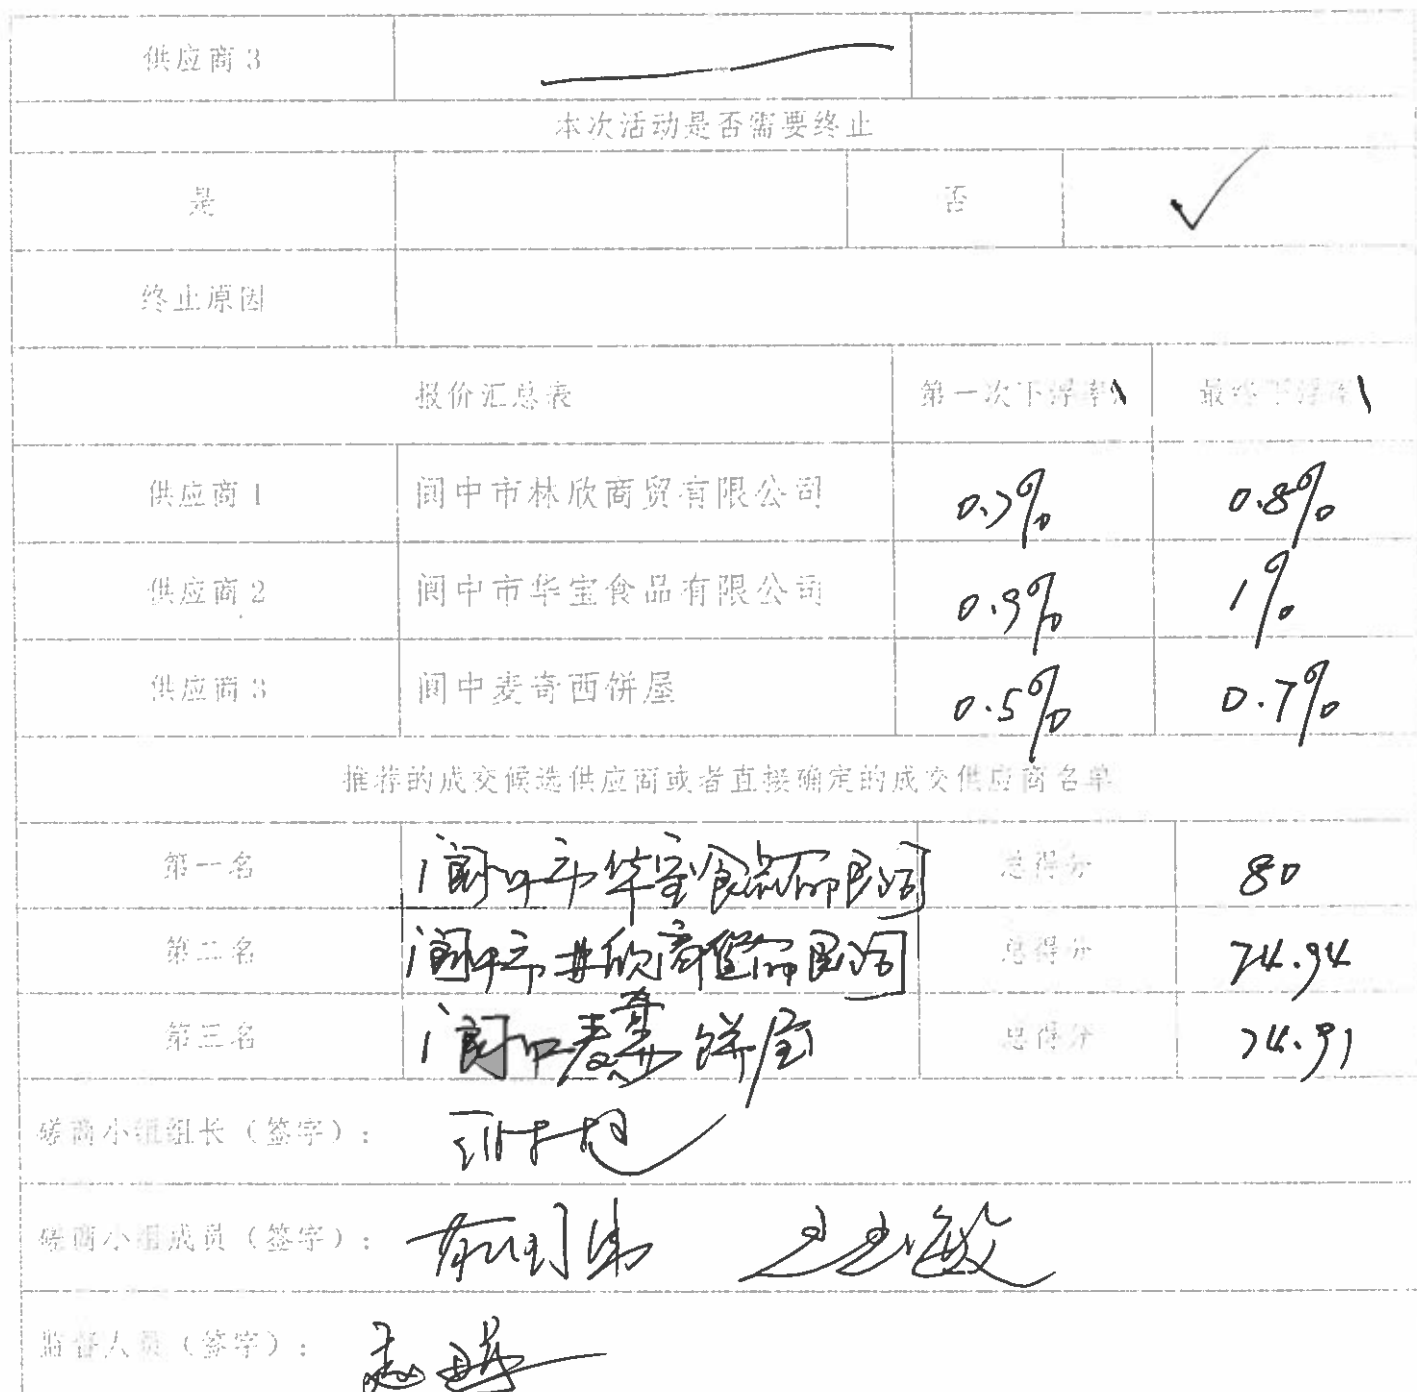 供应商3
本次活动是否需要终止
是 否 ✓
终止原因
报价汇总表 第一次下浮率 最终下浮率
供应商1 阆中市林欣商贸有限公司 0.7% 0.8%
供应商2 阆中市华宝食品有限公司 0.9% 1%
供应商3 阆中麦奇西饼屋 0.5% 0.7%
推荐的成交候选供应商或者直接确定的成交供应商名单
第一名 阆中市华宝食品有限公司 总得分 80
第二名 阆中市林欣商贸有限公司 总得分 74.94
第三名 阆中麦奇西饼屋 总得分 74.91
磋商小组组长（签字）：
磋商小组成员（签字）：
监督人员（签字）：